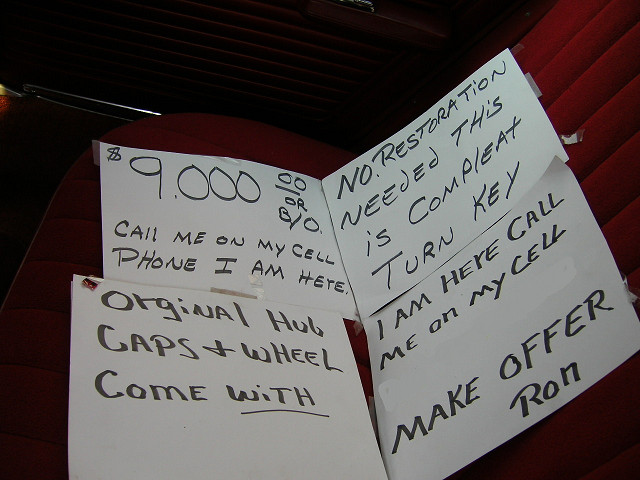 $9.000 00
OR
B/O.
CAll ME ON MY CELL
PHONE I AM HERE.
NO.RESTORATION
NEEDED THIS
iS COMPLEAT
TURN KEY
ORginAl Hub
CAPS + WHEEL
COME WiTH
I AM HERE CALL
ME On MY CELL
MAKE OFFER
Ron